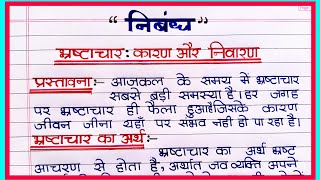 “ निबंध ”
भ्रष्टाचार : कारण और निवारण
प्रस्तावना:- आजकल के समय मे भ्रष्टाचार
सबसे बड़ी समस्या है। हर जगह
पर भ्रष्टाचार ही फैला हुआ है जिसके कारण
जीवन जीना यहाँ पर संभव नही हो पा रहा है।
भ्रष्टाचार का अर्थ:-
भ्रष्टाचार का अर्थ भ्रष्ट
आचरण से होता है, अर्थात जब व्यक्ति अपने